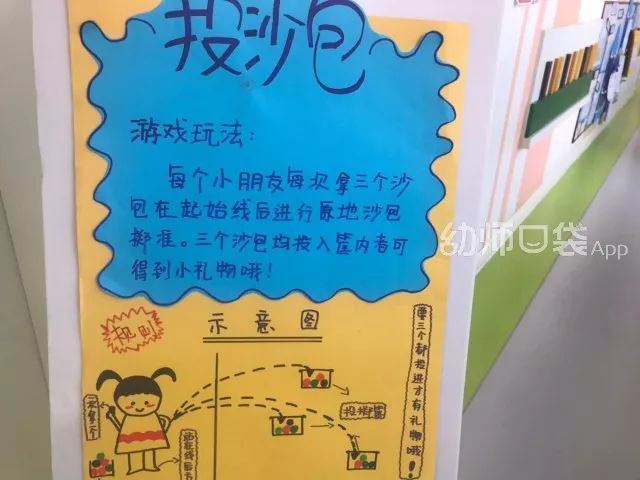 投沙包
游戏玩法：
每个小朋友每次拿三个沙
包在起始线后进行原地沙包
掷准。三个沙包均投入筐内者可
得到小礼物哦！
规则
示意图
要三个都投进才有礼物哦！
一次拿三个
站在线后方
投掷筐
幼师口袋App